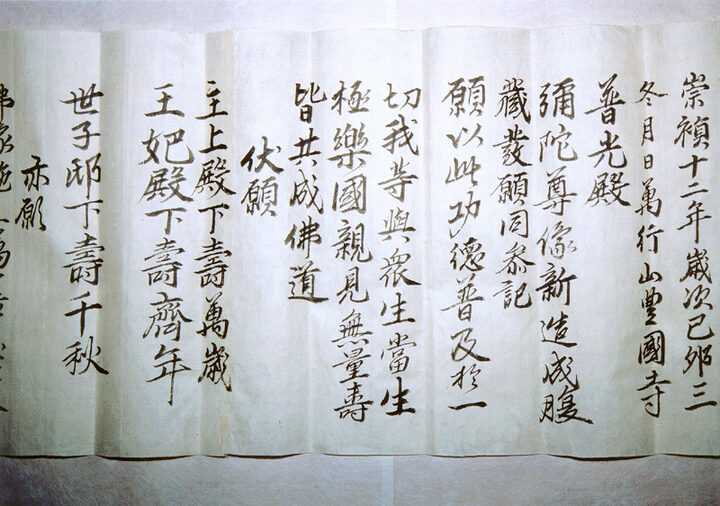 崇禎十二年歲次己夘三
冬月日萬行山豊國寺
普光殿
彌陀尊像新造成腹
藏發願同叅記
願以此功德普及於一
切我等與衆生當生
極樂國親見無量壽
皆共成佛道
伏願
主上殿下壽萬歲
王妃殿下壽齊年
世子邸下壽千秋
亦願